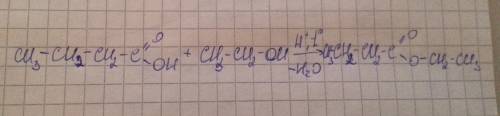 CH₃–CH₂–CH₂–C(=O)–OH + CH₃–CH₂–OH —(H⁺, t°; –H₂O)→ CH₃CH₂–CH₂–C(=O)–O–CH₂–CH₃